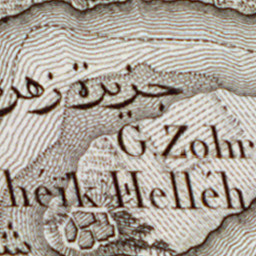 جزيرة زهر
G. Zohr
héïk Helléh